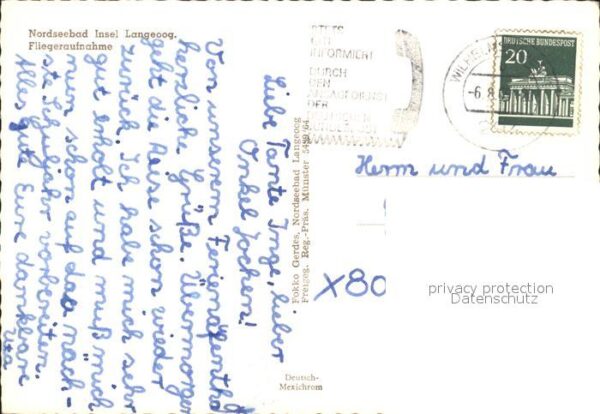 Nordseebad Insel Langeoog.
Fliegeraufnahme
Liebe Tante Inge, lieber
Onkel Jochen!
Von unserem Ferienaufenthalt
herzliche Grüße. Übermorgen
geht die Reise schon wieder
zurück. Ich habe mich sehr
gut erholt und muß mich
nun schon auf das näch-
ste Schuljahr vorbereiten.
Alles Gute Eure dankbare
Uta
Fokko Gerdes, Nordseebad Langeoog
Freigeg. Reg.-Präs. Münster 5480/64
Deutsch-
Mexichrom
INFORMIERT
DURCH
DEN
DER
DEUTSCHE BUNDESPOST
20
-6.8.
Herrn und Frau
x80
privacy protection
Datenschutz